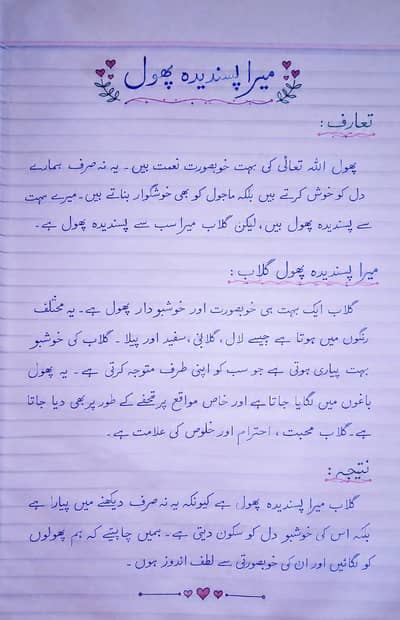 میرا پسندیدہ پھول
تعارف :
پھول اللہ تعالٰی کی بہت خوبصورت نعمت ہیں۔ یہ نہ صرف ہمارے
دل کو خوش کرتے ہیں بلکہ ماحول کو بھی خوشگوار بناتے ہیں۔ میرے بہت
سے پسندیدہ پھول ہیں، لیکن گلاب میرا سب سے پسندیدہ پھول ہے۔
میرا پسندیدہ پھول گلاب :
گلاب ایک بہت ہی خوبصورت اور خوشبودار پھول ہے۔ یہ مختلف
رنگوں میں ہوتا ہے جیسے لال، گلابی، سفید اور پیلا۔ گلاب کی خوشبو
بہت پیاری ہوتی ہے جو سب کو اپنی طرف متوجہ کرتی ہے۔ یہ پھول
باغوں میں لگایا جاتا ہے اور خاص مواقع پر تحفے کے طور پر بھی دیا جاتا
ہے۔ گلاب محبت، احترام اور خلوص کی علامت ہے۔
نتیجہ :
گلاب میرا پسندیدہ پھول ہے کیونکہ یہ نہ صرف دیکھنے میں پیارا ہے
بلکہ اس کی خوشبو دل کو سکون دیتی ہے۔ ہمیں چاہیئے کہ ہم پھولوں
کو لگائیں اور ان کی خوبصورتی سے لطف اندوز ہوں۔